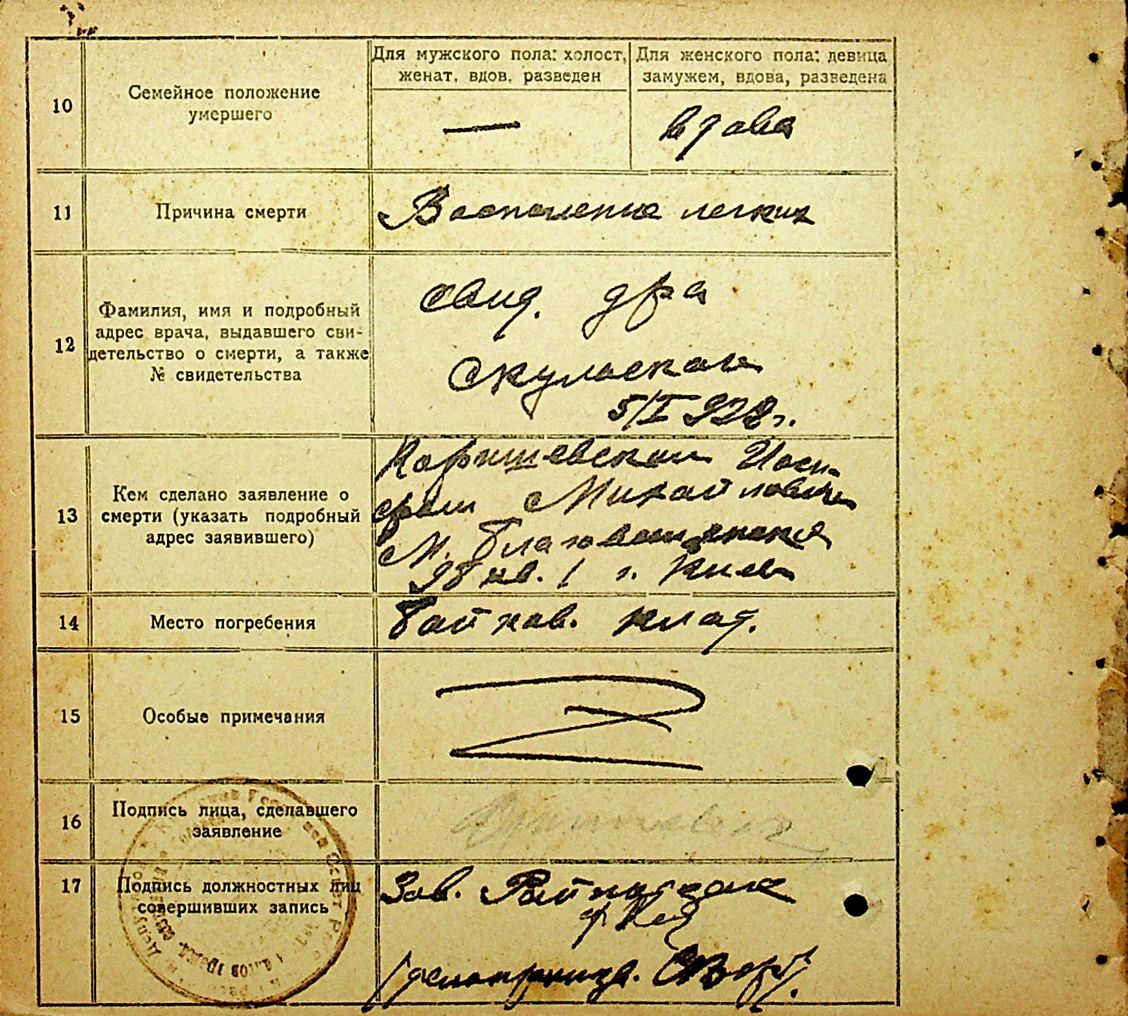 10
Семейное положение
умершего
Для мужского пола: холост,
женат, вдов, разведен
—
Для женского пола: девица
замужем, вдова, разведена
вдова
11
Причина смерти
Воспаление легких
12
Фамилия, имя и подробный
адрес врача, выдавшего сви-
детельство о смерти, а также
№ свидетельства
свид. д-ра
Скульской
5/I 928 г.
13
Кем сделано заявление о
смерти (указать подробный
адрес заявившего)
Иоси-
фом Михайлович
М. Благовещенская
98 кв. 1 г. Киев
14
Место погребения
Байков. клад.
15
Особые примечания
16
Подпись лица, сделавшего
заявление
17
Подпись должностных лиц
совершивших запись
Зав.